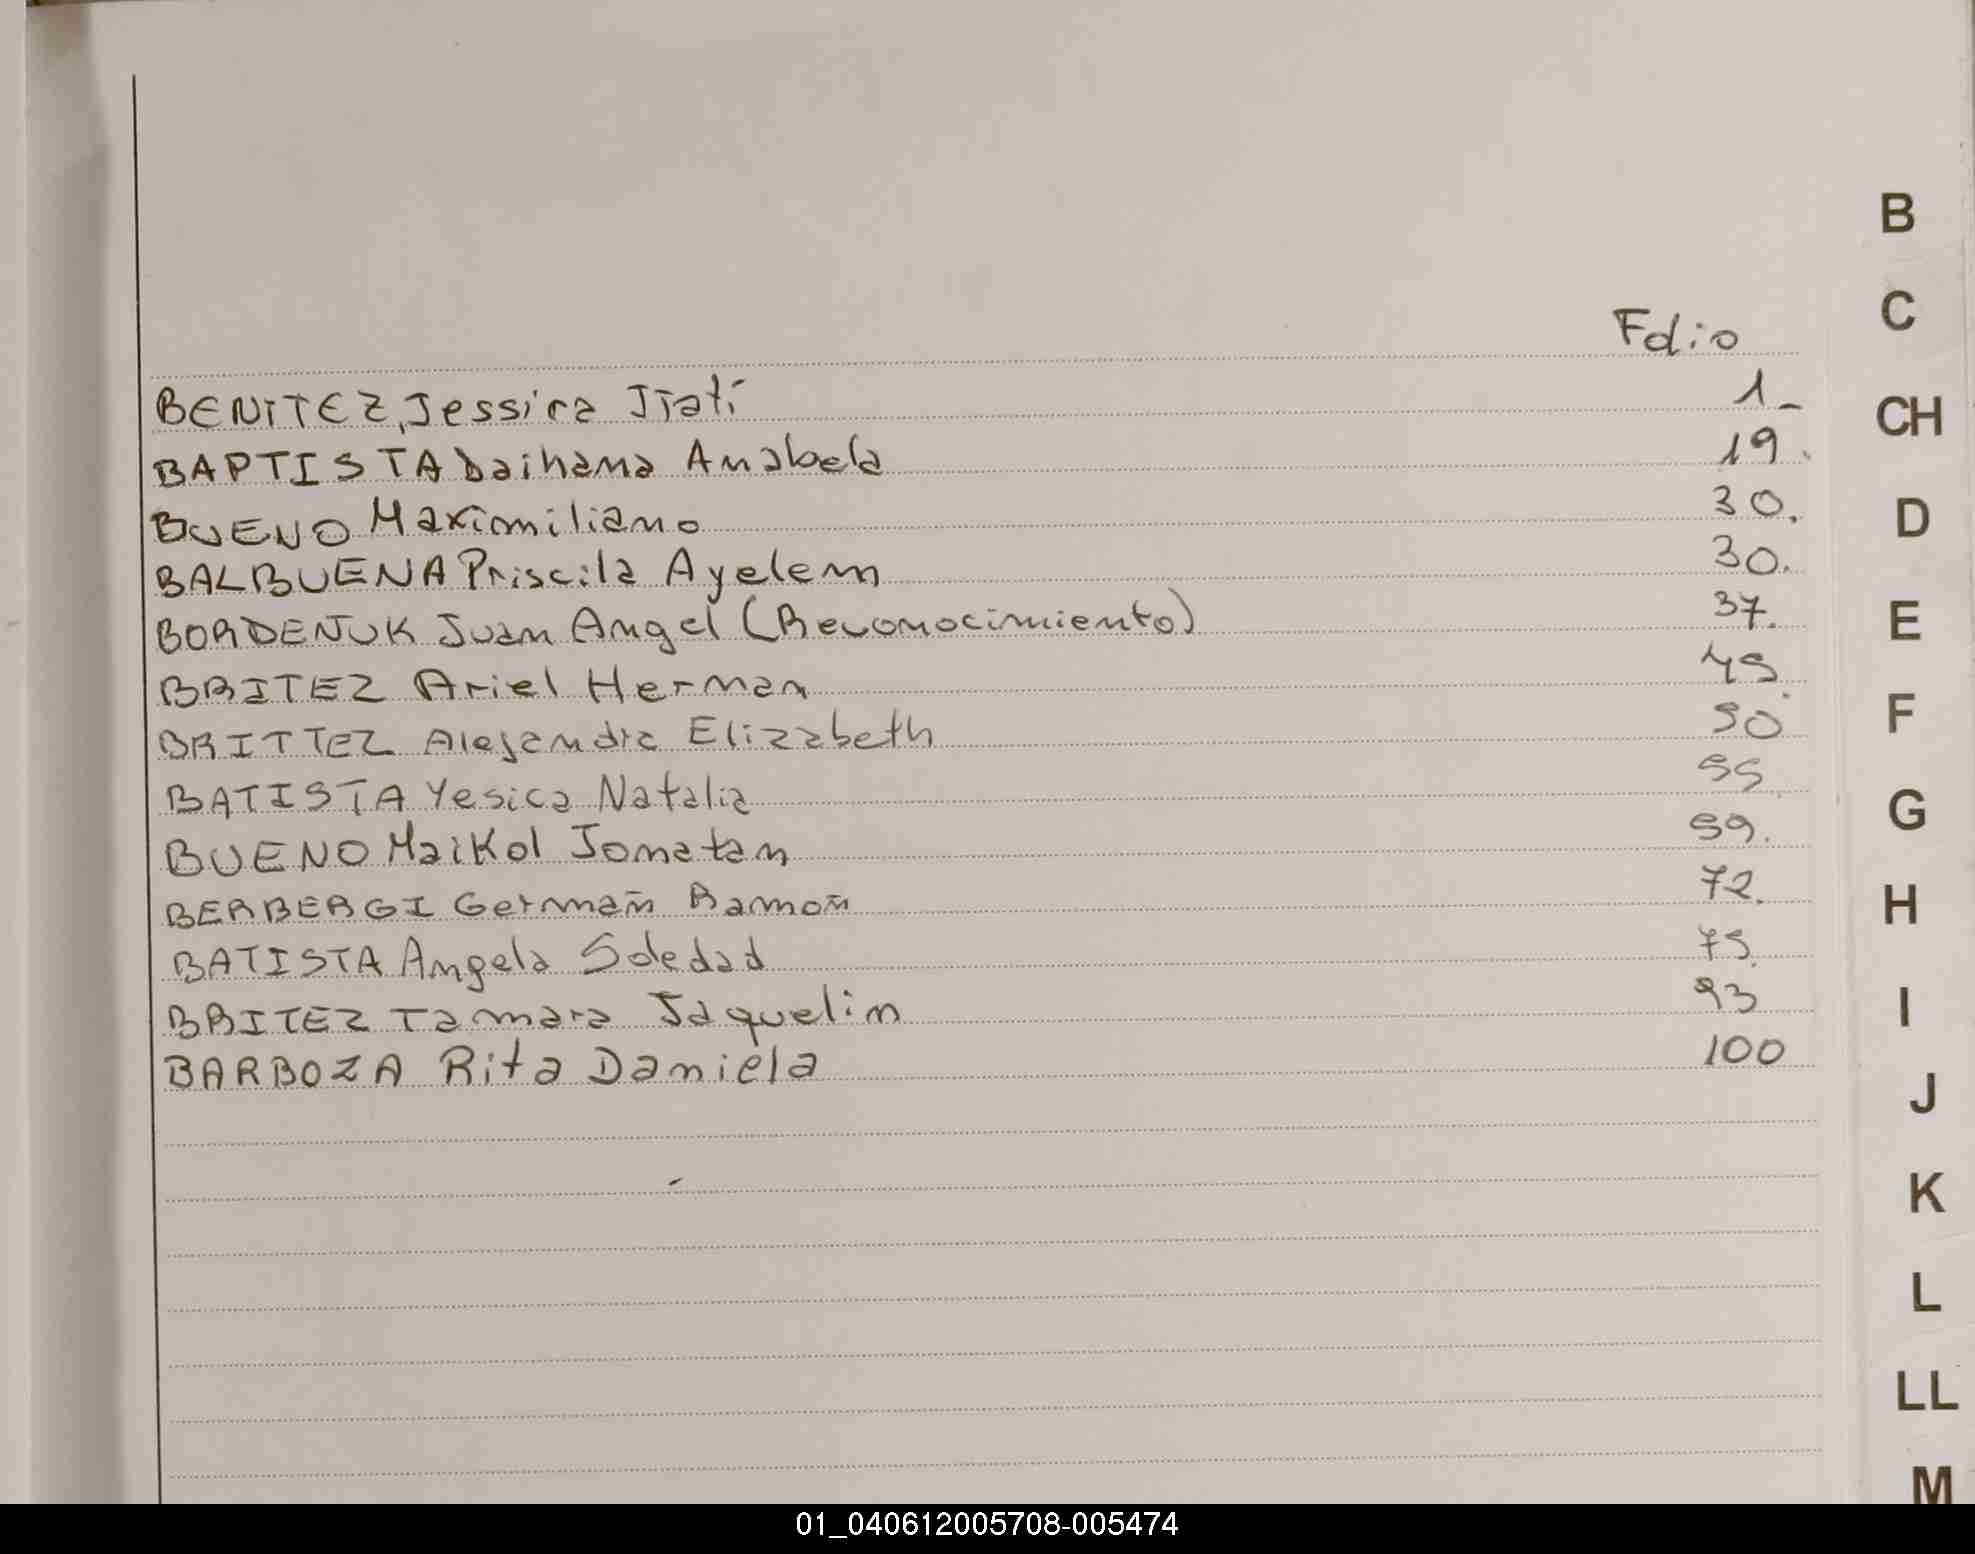 Folio
BENITEZ, Jessica Itatí 1_
BAPTISTA Daihana Anabela 19.
BUENO Maximiliano 30.
BALBUENA Priscila Ayelem 30.
BORDENJUK Juan Angel (Reconocimiento) 37.
BRITEZ Ariel Herman 45
BRITTEZ Alejandra Elizabeth 50
BATISTA Yesica Natalia 55
BUENO Maikol Jonatan 59.
BERBERGI Germañ Ramoñ 72.
BATISTA Angela Soledad 75.
BRITEZ Tamara Jaquelin 93
BARBOZA Rita Daniela 100
B
C
CH
D
E
F
G
H
I
J
K
L
LL
M
01_040612005708-005474